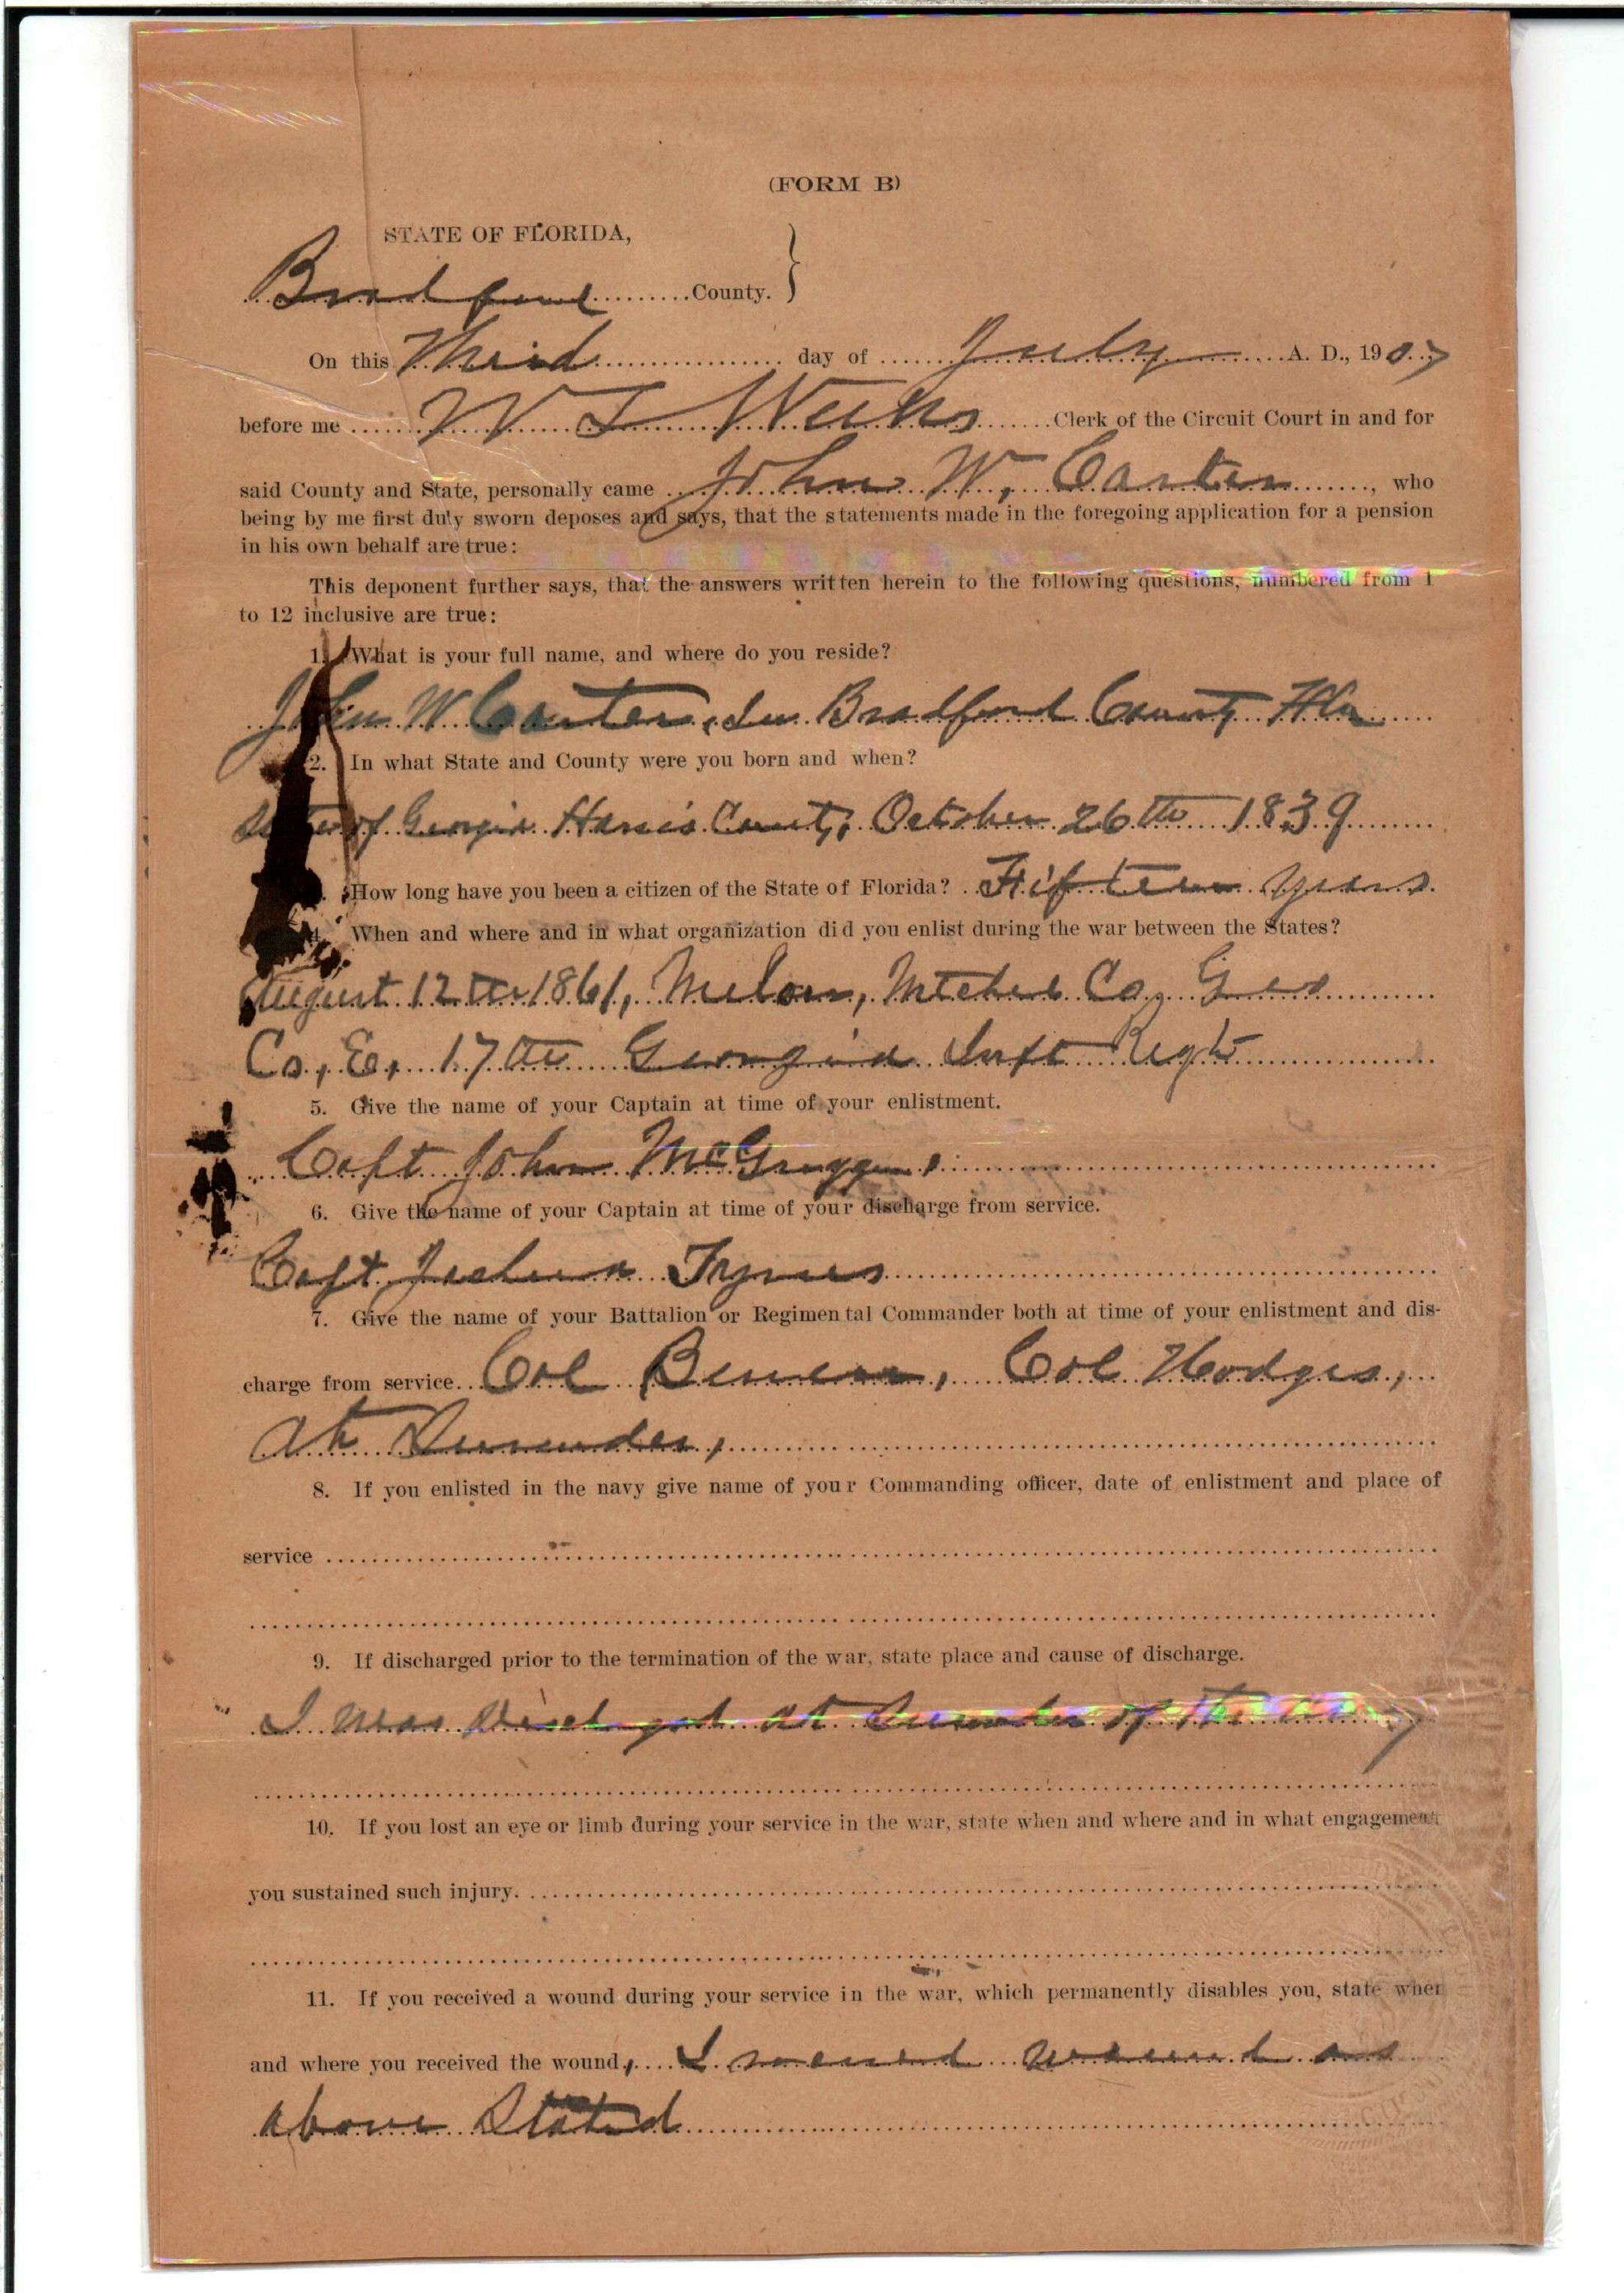 (FORM B)
STATE OF FLORIDA,
Bradford County.
On this Third day of July A. D., 1907
before me W T Weeks Clerk of the Circuit Court in and for
said County and State, personally came John W. Carter, who
being by me first duly sworn deposes and says, that the statements made in the foregoing application for a pension
in his own behalf are true:
This deponent further says, that the answers written herein to the following questions, numbered from 1
to 12 inclusive are true:
1. What is your full name, and where do you reside?
John W Carter, In Bradford County Fla
2. In what State and County were you born and when?
State of Georgia Harris County, October 26th 1839
How long have you been a citizen of the State of Florida? Fifteen years
4. When and where and in what organization did you enlist during the war between the States?
August 12th 1861, Mitchel Co, Geo
Co, E, 17th Georgia Inft Regt
5. Give the name of your Captain at time of your enlistment.
Capt John
6. Give the name of your Captain at time of your discharge from service.
Capt Joshua
7. Give the name of your Battalion or Regimental Commander both at time of your enlistment and dis-
charge from service. Col Col Hodges,
At Surrender,
8. If you enlisted in the navy give name of your Commanding officer, date of enlistment and place of
service
9. If discharged prior to the termination of the war, state place and cause of discharge.
I was discharged at Surrender of the army
10. If you lost an eye or limb during your service in the war, state when and where and in what engagement
you sustained such injury.
11. If you received a wound during your service in the war, which permanently disables you, state when
and where you received the wound, I received wound as
above Stated